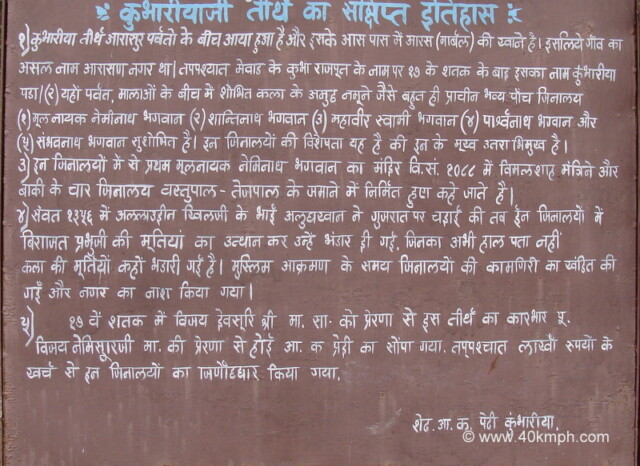 कुंभारीयाजी तीर्थ का संक्षिप्त इतिहास
१) कुंभारीया तीर्थ आरासुर पर्वतो के बीच आया हुआ है और इसके आस पास में आरस (मार्बल) की खाने है। इसलिये गाँव का
असल नाम आरासण नगर था। तपपश्यात मेवाड के कुंभा राजपूत के नाम पर १७ के शतक के बाद इसका नाम कुंभारीया
पडा। (२) यहाँ पर्वत, मालाओं के बीच में शोभित कला के अमुढ नमूने जैसे बहुत ही प्राचीन भव्य पाँच जिनालय
(१) मूलनायक नेमीनाथ भगवान (२) शान्तिनाथ भगवान (३) महावीर स्वामी भगवान (४) पार्श्वनाथ भगवान और
(५) संभवनाथ भगवान सुशोभित है। इन जिनालयों की विशेषता यह है की इन के मूख उतराभिमुख है।
३) इन जिनालयों में से प्रथम मूलनायक नेमिनाथ भगवान का मंदिर वि.सं. १०८८ में विमलशाह मंत्रिने और
बाकी के चार जिनालय वस्तुपाल - तेजपाल के जमाने में निर्मित हुए कहे जाते है।
४) संवत १३५६ में अल्लाउद्दीन खिलजी के भाई अलुघखान ने गुजरात पर चडाई की तब इन जिनालयों में
बिराजित प्रभुजी की मूर्तियां का उत्थान कर उन्हें भंडार दी गई. जिनका अभी हाल पता नहीं
कला की मूर्तियाँ कहाँ भंडारी गई है। मुस्लिम आक्रमण के समय जिनालयों की कामगिरी का खंडित की
गई और नगर का नाश किया गया।
५) १७ वें शतक में विजय देवसूरि श्री मा. सा. की प्रेरणा से इस तीर्थ का कारभार पू.
विजय नेमिसूरजी मा. की प्रेरणा से होई आ. क. पेढ़ी का सोंपा गया. तपपश्चात लाखों रुपयों के
खर्च से इन जिनालयों का जिर्णोद्धार किया गया.
शेठ. आ. क. पेटी कुंभारीया.
© www.40kmph.com